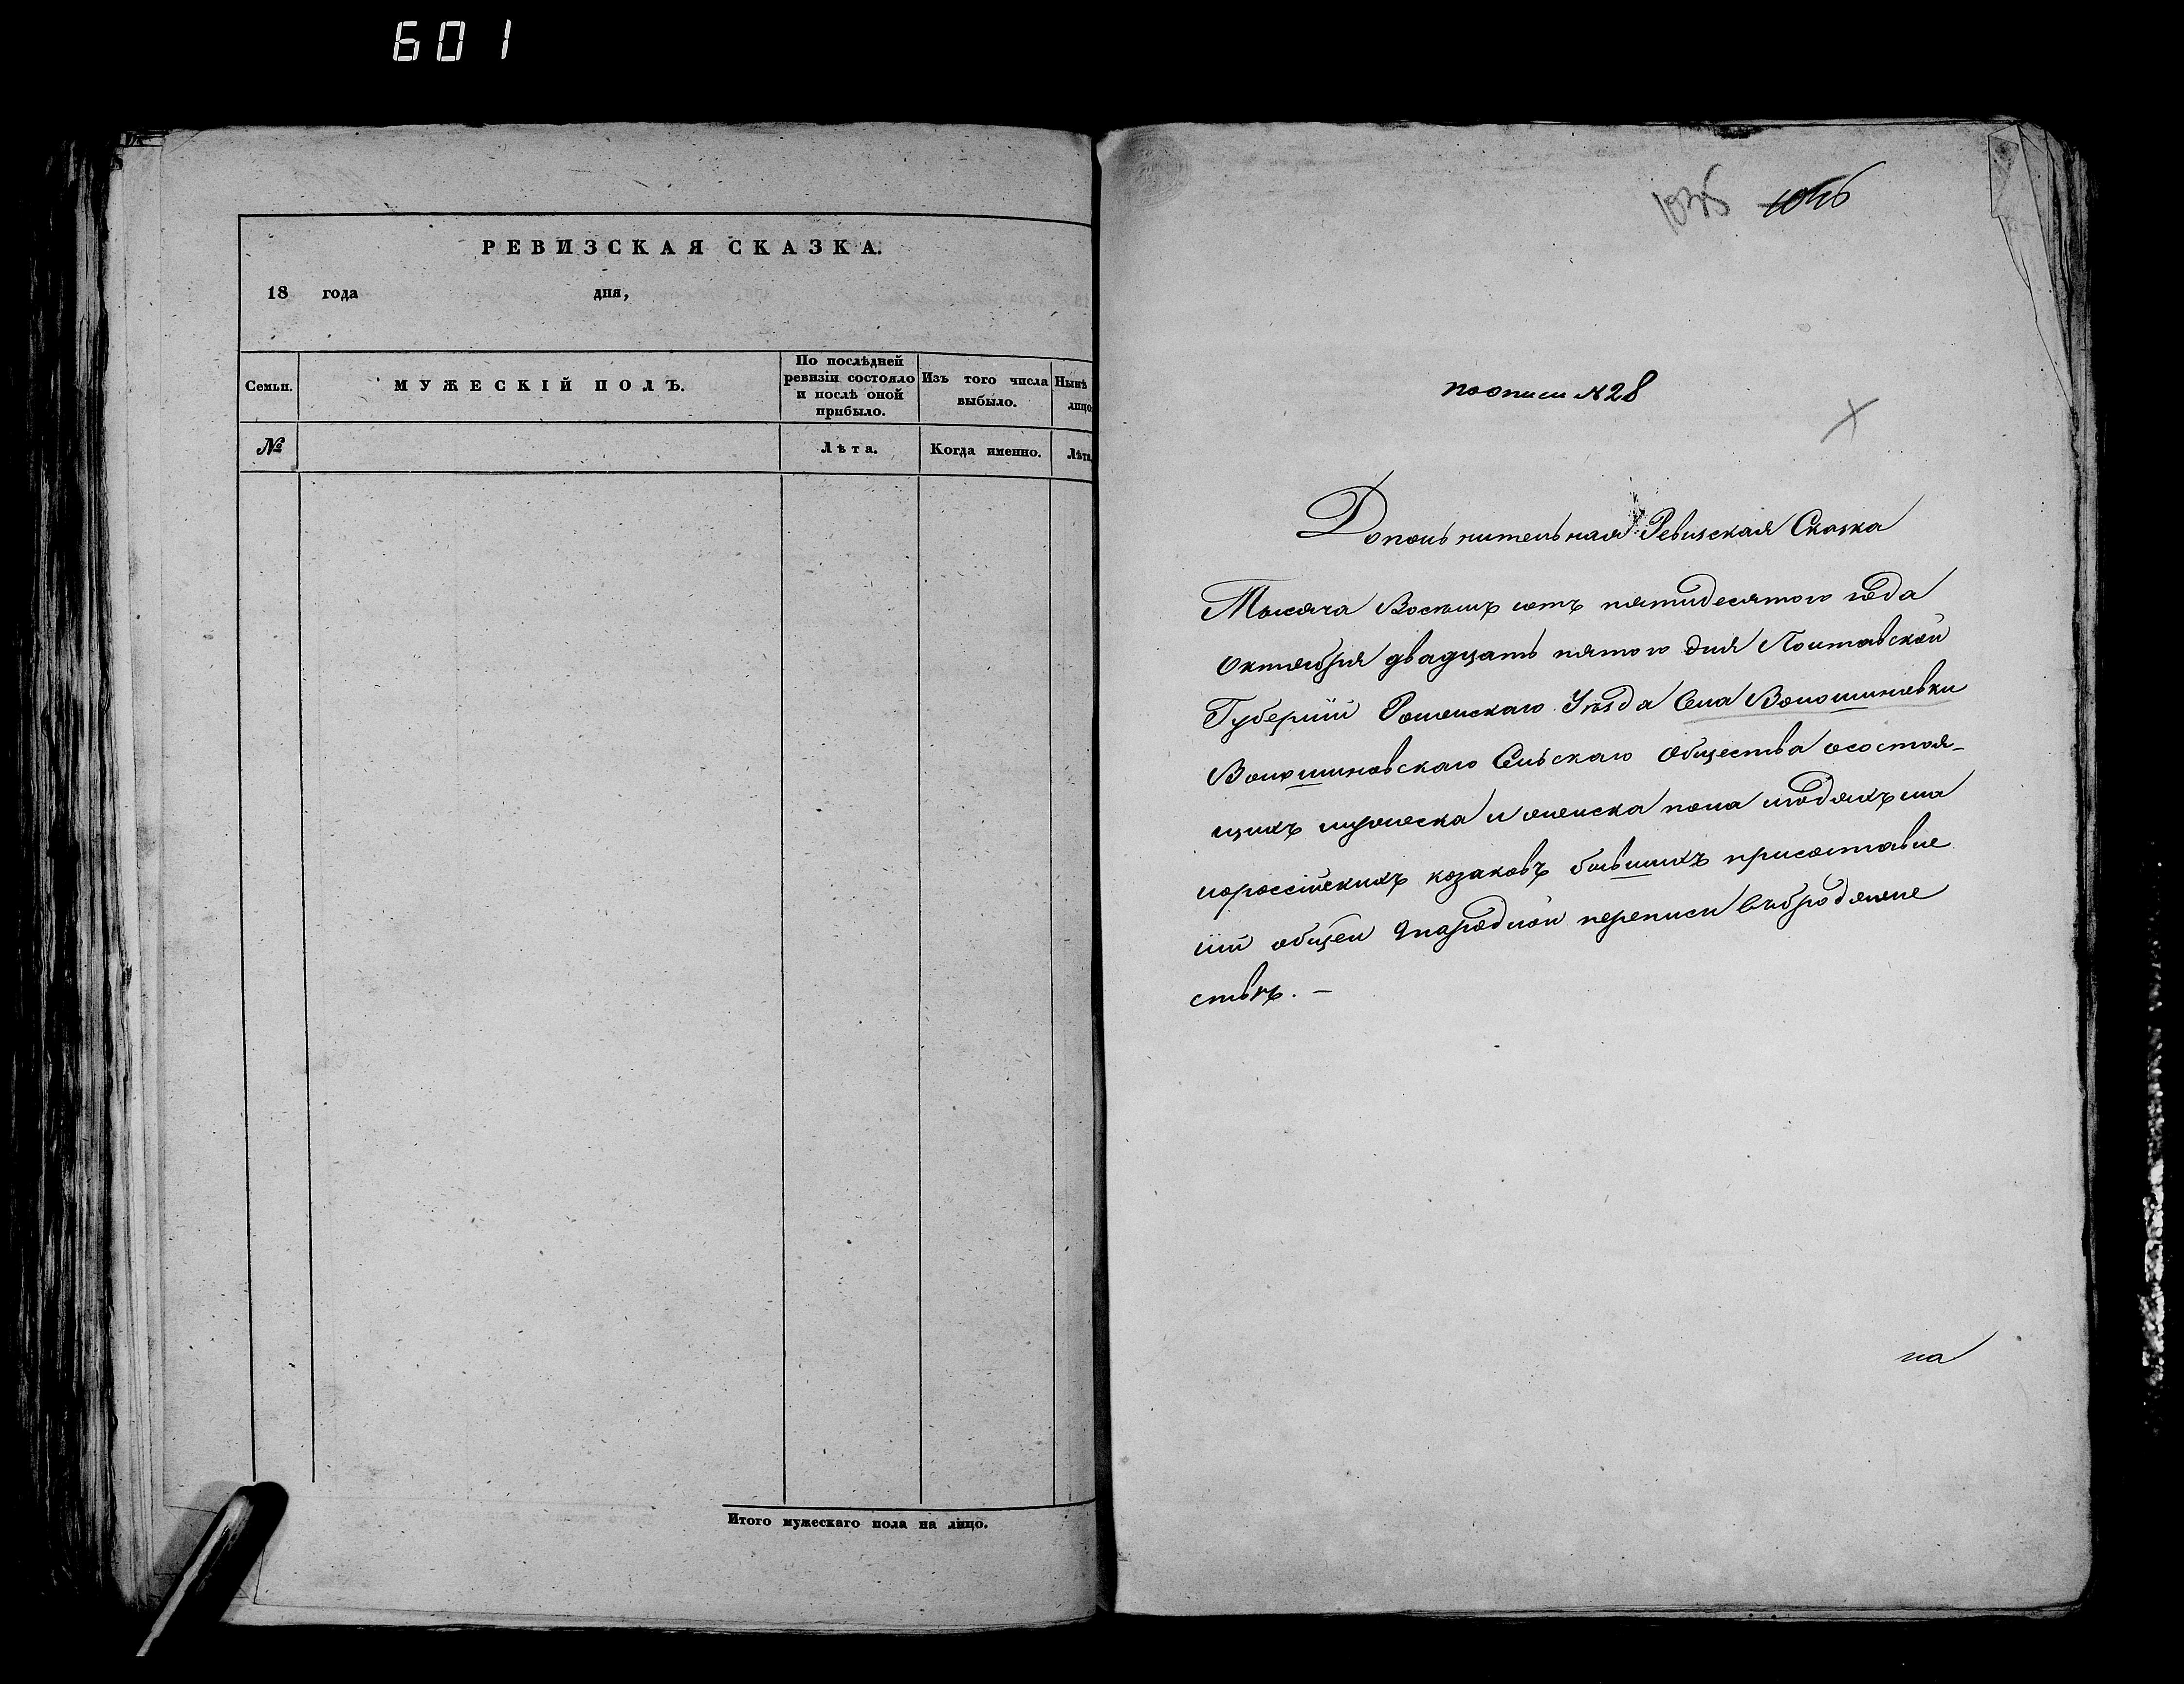 601
РЕВИЗСКАЯ СКАЗКА.
18 года дня,
Семьи.
МУЖЕСКІЙ ПОЛЪ.
По послѣдней
ревизіи состояло
и послѣ оной
прибыло.
Изъ того числа
выбыло.
Нынѣ
лицо
№
Лѣта.
Когда именно.
Лѣта
Итого мужескаго пола на лицо.
поописи №28
Дополнительная Ревизская Сказка
Тысяча Восемъ сотъ пятидесятого года
Октября двадцать пятого дня Полтавской
Губерніи Роменскаго Уѣзда Села Волошиновки
Волошиновскаго Сельскаго Общества осостоя-
щихъ мужеска и женска пола людяхъ ма
лороссійскихъ козаковъ бывшихъ присоставле
ніи общей Народной переписи въбродяже
ствѣ. –
на